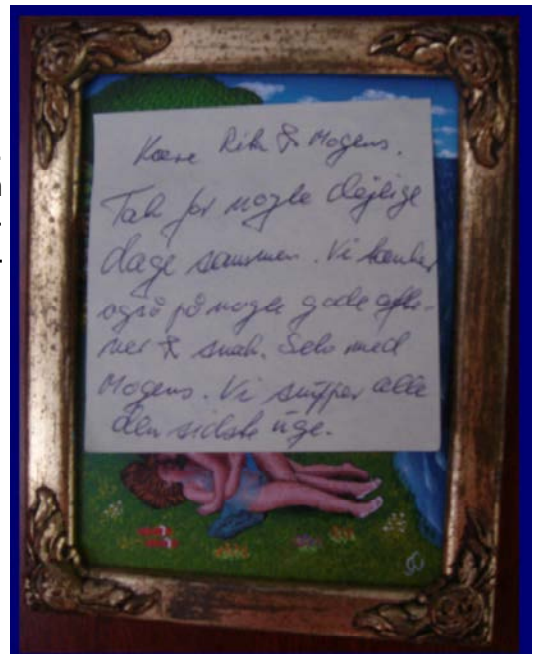 Kære Rita & Mogens.
Tak for nogle dejlige
dage sammen. Vi tænker
også på nogle gode afte-
ner & snak. Selv med
Mogens. Vi snupper alle
den sidste uge.